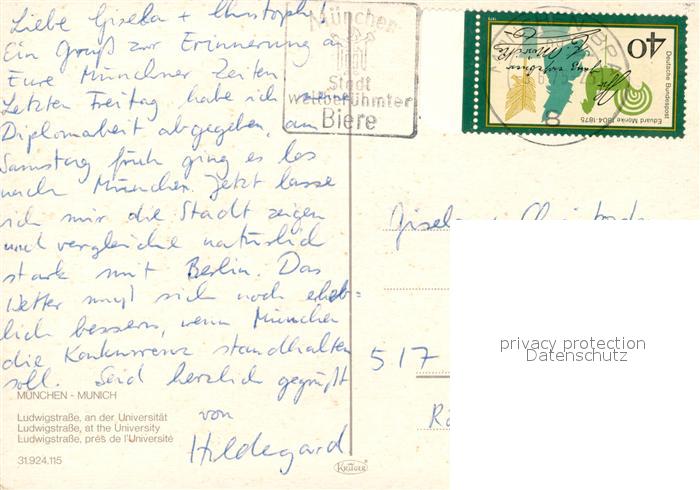 Liebe Gisela + Christoph!
Ein Gruß zur Erinnerung an
Eure Münchner Zeiten.
Letzten Freitag habe ich meine
Diplomarbeit abgegeben, am
Samstag früh ging es los
nach München. Jetzt lasse
ich mir die Stadt zeigen
und vergleiche natürlich
stark mit Berlin. Das
Wetter muß sich noch erheb=
lich bessern, wenn München
die Konkurrenz standhalten
soll. Seid herzlich gegrüßt
von
Hildegard
MÜNCHEN - MUNICH
Ludwigstraße, an der Universität
Ludwigstraße, at the University
Ludwigstraße, prés de l'Université
31.924.115
KRÜGER
München
Stadt
weltberühmter
Biere
40
Deutsche Bundespost
Eduard Mörike 1804-1875
E. Mörike
8
Gisela + Christoph
517
privacy protection
Datenschutz